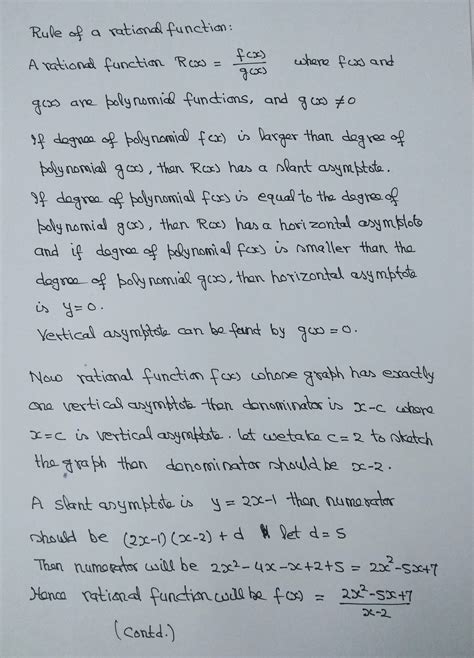 Rule of a rational function:
A rational function R(x) = f(x)/g(x) where f(x) and
g(x) are polynomial functions, and g(x) ≠ 0
If degree of polynomial f(x) is larger than degree of
polynomial g(x), then R(x) has a slant asymptote.
If degree of polynomial f(x) is equal to the degree of
polynomial g(x), then R(x) has a horizontal asymptote
and if degree of polynomial f(x) is smaller than the
degree of polynomial g(x), then horizontal asymptote
is y=0.
Vertical asymptote can be fand by g(x) = 0.
Now rational function f(x) whose graph has exactly
one vertical asymptote then denominator is x-c where
x=c is vertical asymptote. let we take c=2 to sketch
the graph then denominator should be x-2.
A slant asymptote is y = 2x-1 then numerator
should be (2x-1)(x-2) + d let d=5
Then numerator will be 2x²-4x-x+2+5 = 2x²-5x+7
Hence rational function will be f(x) = 2x²-5x+7/x-2
(Contd.)